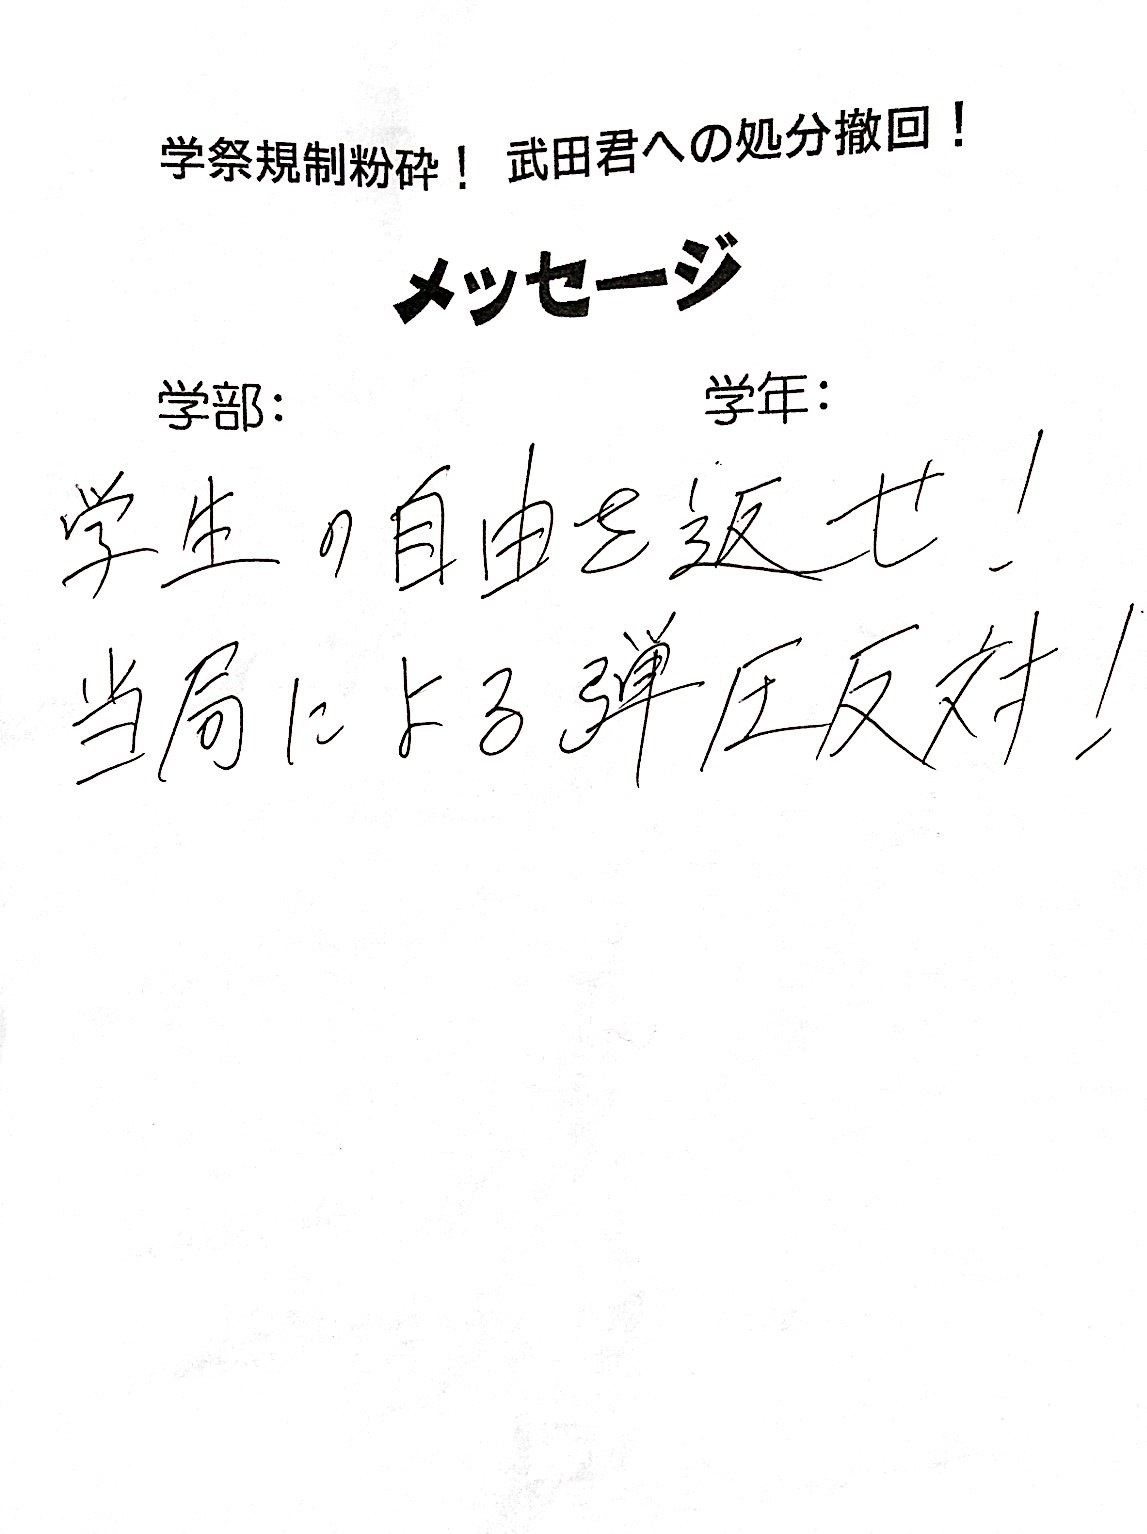 学祭規制粉砕！ 武田君への処分撤回！
メッセージ
学部： 学年：
学生の自由を返せ！
当局による弾圧反対！